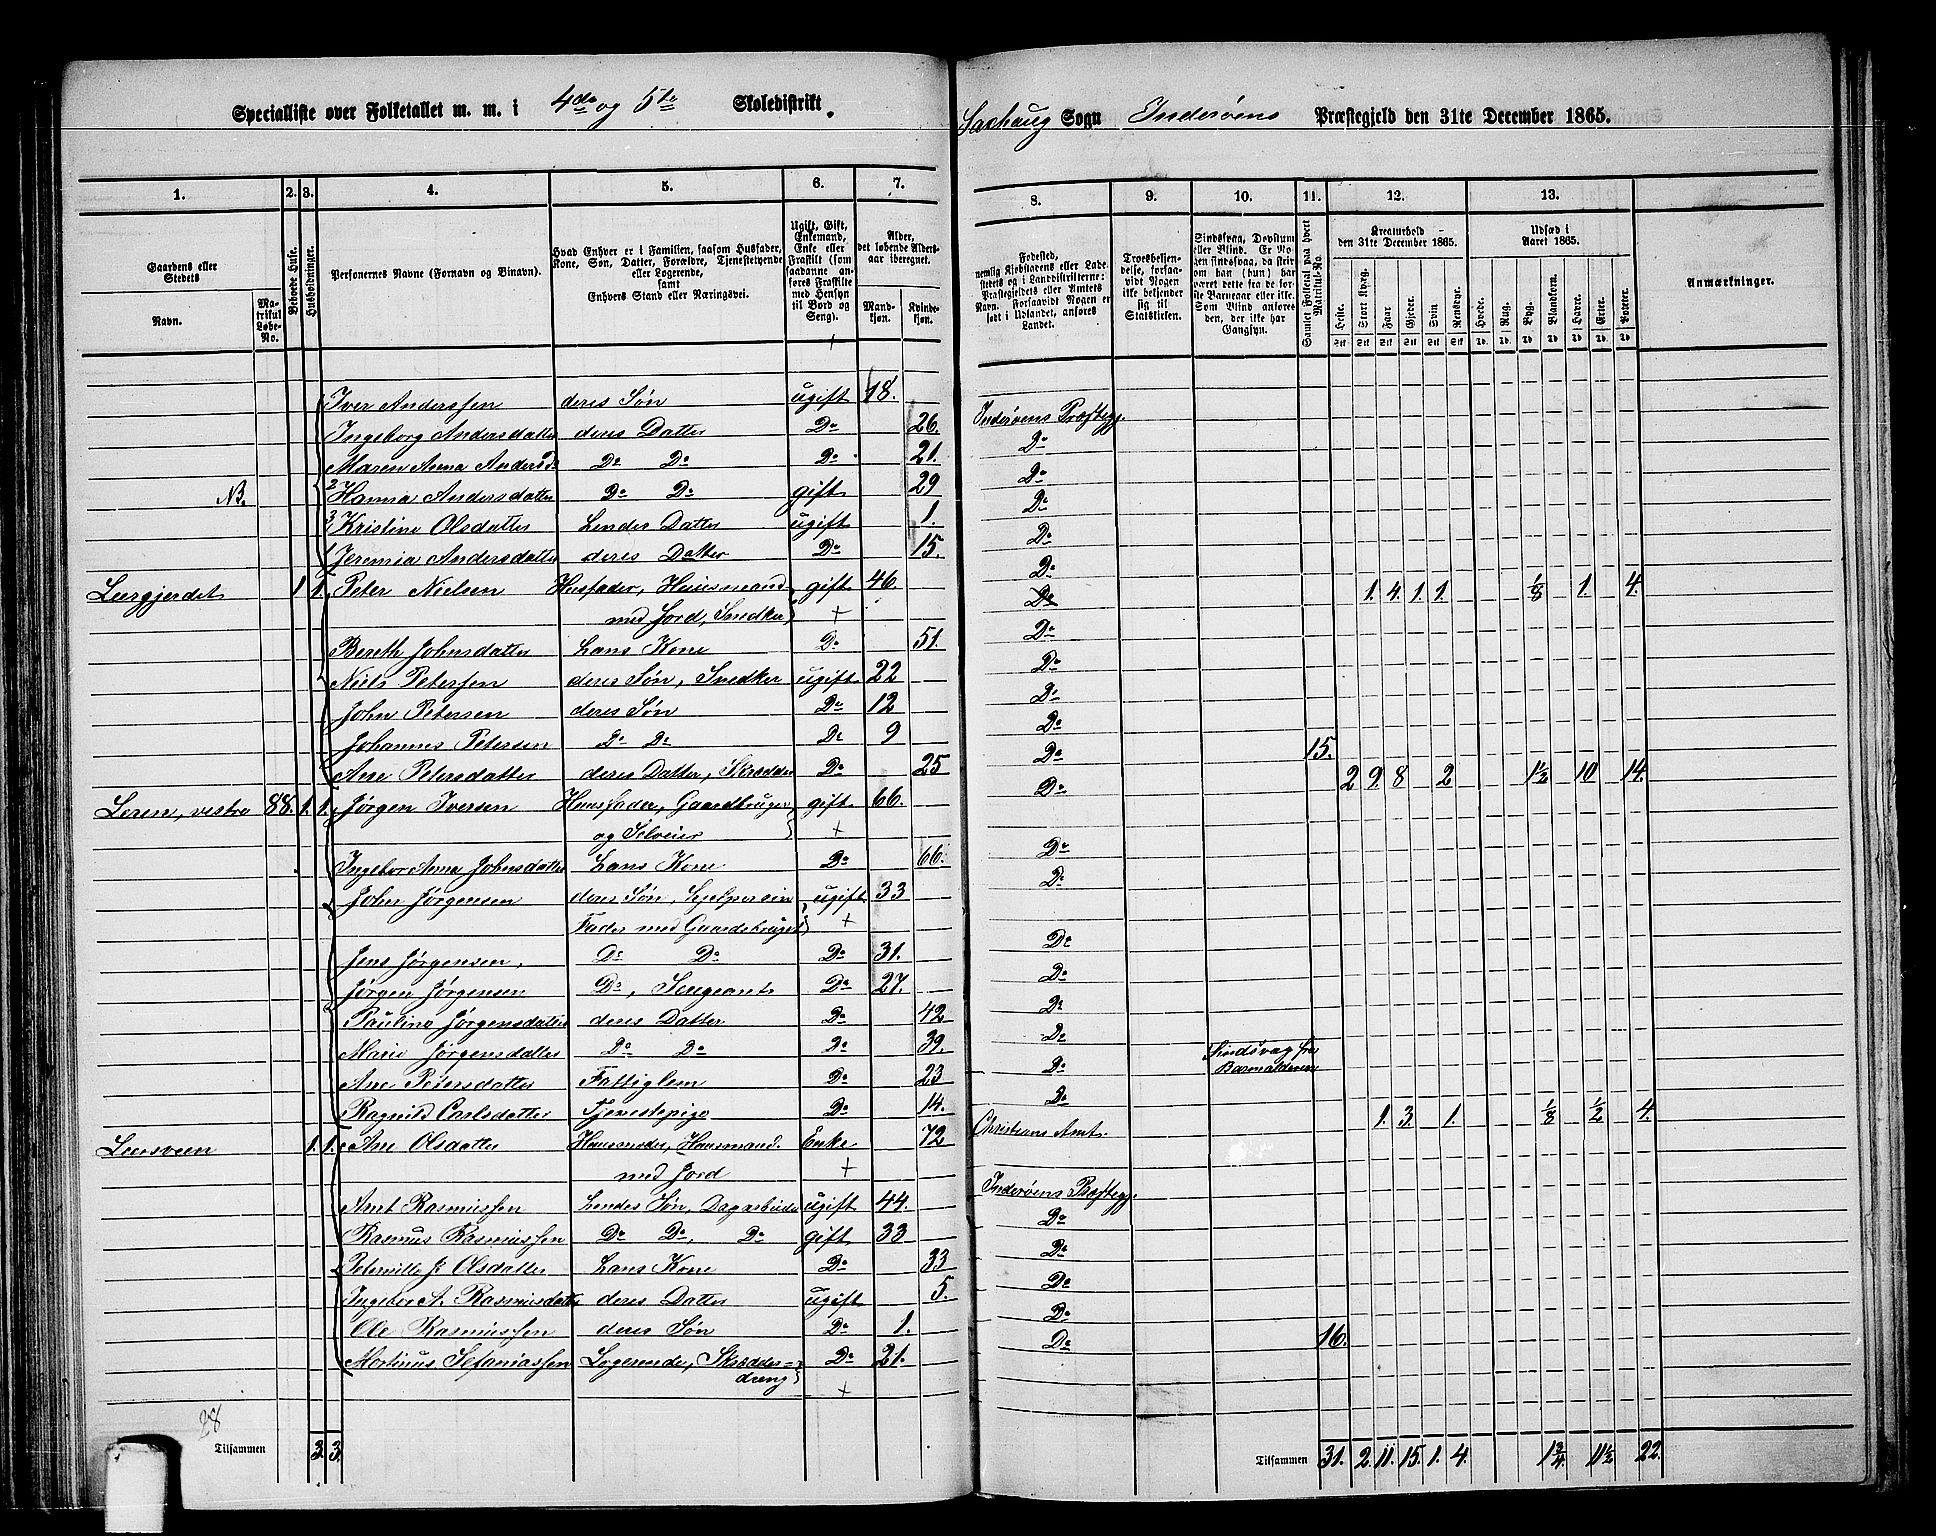 Specialliste over Folketallet m. m. i 4de og 5te Skoledistrikt. Saxhaug Sogn Inderøens Præstegjeld den 31te December 1865.
1. 2. 3. 4. 5. 6. 7. 8. 9. 10. 11. 12. 13.
Gaardens eller Stedets
Navn. Matrikul Løbe-No.
Beboede Huse.
Husholdninger.
Personernes Navne (Fornavn og Binavn).
Hvad Enhver er i Familien, saasom Husfader, Kone, Søn, Datter, Forældre, Tjenestetyende eller Logerende, samt Enhvers Stand eller Næringsvei.
Ugift, Gift, Enkemand, Enke eller Fraskilt (som saadanne anføres Fraskilte med Hensyn til Bord og Seng).
Alder, det løbende Alders-aar iberegnet.
Mandkjøn. Kvindekjøn.
Fødested, nemlig Kjøbstadens eller Ladestedets og i Landdistrikterne: Præstegjeldets eller Amtets Navn. Forsaavidt Nogen er født i Udlandet, anføres Landet.
Troesbekjendelse, forsaavidt Nogen ikke bekjender sig til Statskirken.
Sindssvag, Døvstum eller Blind. Er Nogen sindssvag, da skrives om han (hun) har været dette fra de første Barneaar eller ikke. Som Blind anføres den, der ikke har Gangsyn.
Samlet Folketal paa hvert Matrikul-No.
Kreaturhold den 31te December 1865.
Heste. Stort Kvæg. Faar. Gjeder. Svin. Rensdyr.
Udsæd i Aaret 1865.
Hvede. Rug. Byg. Blandkorn. Havre. Erter. Poteter.
Anmærkninger.
Iver Anderssen deres Søn ugift 18. Inderøens Præstegj.
Ingeborg Andersdatter deres Datter Do 26. Do
Maren Anna Andersd Do Do Do 21. Do
NB. Hanna Andersdatter Do Do gift 29 Do
Kristine Olsdatter Hendes Datter ugift 1. Do
Jeremia Andersdatter deres Datter Do 15. Do
Leergjerdet 1 1. Peter Nielsen Husfader, Huusmand gift 46 Do 1. 4. 1. 1. 1/8 1. 4.
med Jord, Snedker
Bereth Johnsdatter Hans Kone Do 51. Do
Niels Petersen deres Søn, Snedker ugift 22 Do
John Petersen deres Søn Do 12 Do
Johannes Petersen Do Do Do 9 Do
Ane Petersdatter deres Datter, Skrædder Do 25 Do 15.
Leren, vestre 88. 1. 1. Jørgen Iversen Huusfader, Gaardbruger gift 66. Do 2 9. 8 2 1 1/2 10 14.
og Selveier
Ingebor Anna Johnsdatter Hans Kone Do 66. Do
John Jørgensen deres Søn, hjelper sin ugift 33 Do
Fader med Gaardsbruget
Jens Jørgensen, Do Do Do 31. Do
Jørgen Jørgensen Do, Sergeant Do 27. Do
Pauline Jørgensdatter deres Datter Do 42 Do
Marie Jørgensdatter Do Do Do 39. Do
Ane Petersdatter Fattiglem Do 23 Do Sindsvag fra
Barnalderen
Ragnild Carlsdatter Tjenestepige Do 14. Do
Leersveen 1. 1. Ane Olsdatter Huusmoder, Huusmand. Enke 72 Christians Amt. 1. 3. 1. 1/8 1/2 4.
med Jord
Arnt Rasmussen Hendes Søn, Dagarbeider ugift 44. Inderøens Præstegj.
Rasmus Rasmussen Do Do, Do gift 33 Do
Peternille J: Olsdatter Hans Kone Do 33 Do
Ingebor A. Rasmusdatter deres Datter ugift 5. Do
Ole Rasmussen deres Søn Do 1. Do
Mortinus Sefaniassen Logerende, Skrædder= Do 21. Do 16.
dreng
28
Tilsammen 3. 3. Tilsammen 31. 2. 11. 15. 1. 4. 1 3/4 11 1/2 22.